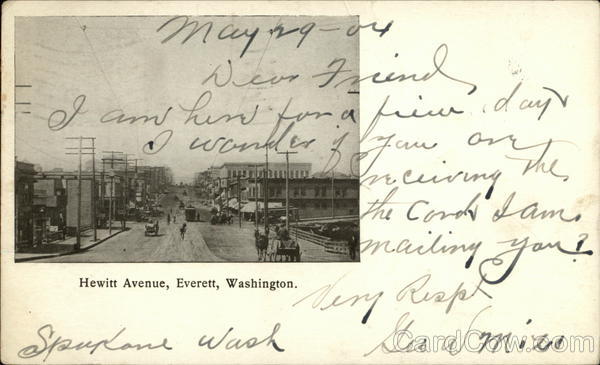 May 29-04
Dear Friend
I am here for a few days
I wonder if you are
receiving the
the Cards I am
mailing you?
Hewitt Avenue, Everett, Washington.
Very Respt
Spokane Wash
CardCow.com